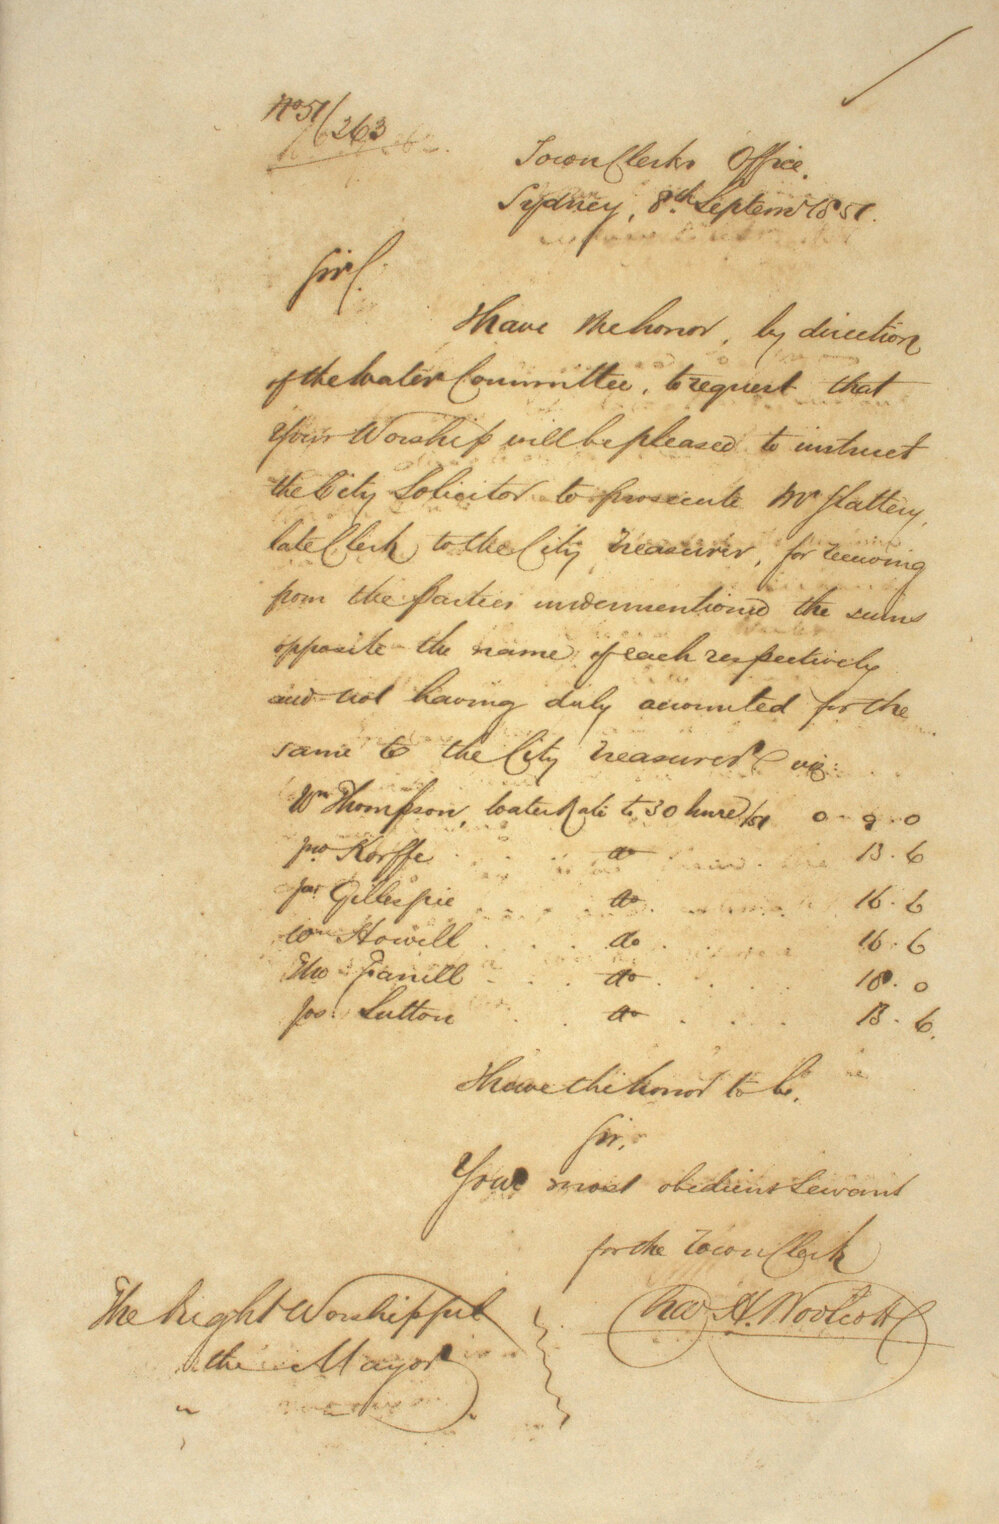 No 51/263
Town Clerks Office.
Sydney, 8th Septemr 1851.
Sir,
I have the honor, by direction
of the Water Committee, to request that
Your Worship will be pleased to instruct
the City Solicitor to prosecute Mr Slattery,
late Clerk to the City Treasurer, for receiving
from the Parties undermentioned the sums
opposite the name of each respectively
and not having duly accounted for the
same to the City Treasurer viz:
Wm Thompson, Water Rate to 30 June/51 0. 9. 0
Jno Korffe do 13. 6
Jas Gillespie do 16. 6
Wm Howell do 16. 6
Thos do 18. 0
Jos. Sutton do 13. 6.
I have the honor to be,
Sir,
Your most obedient Servant
for the Town Clerk
Chas H. Woolcott
The Right Worshipful
the Mayor